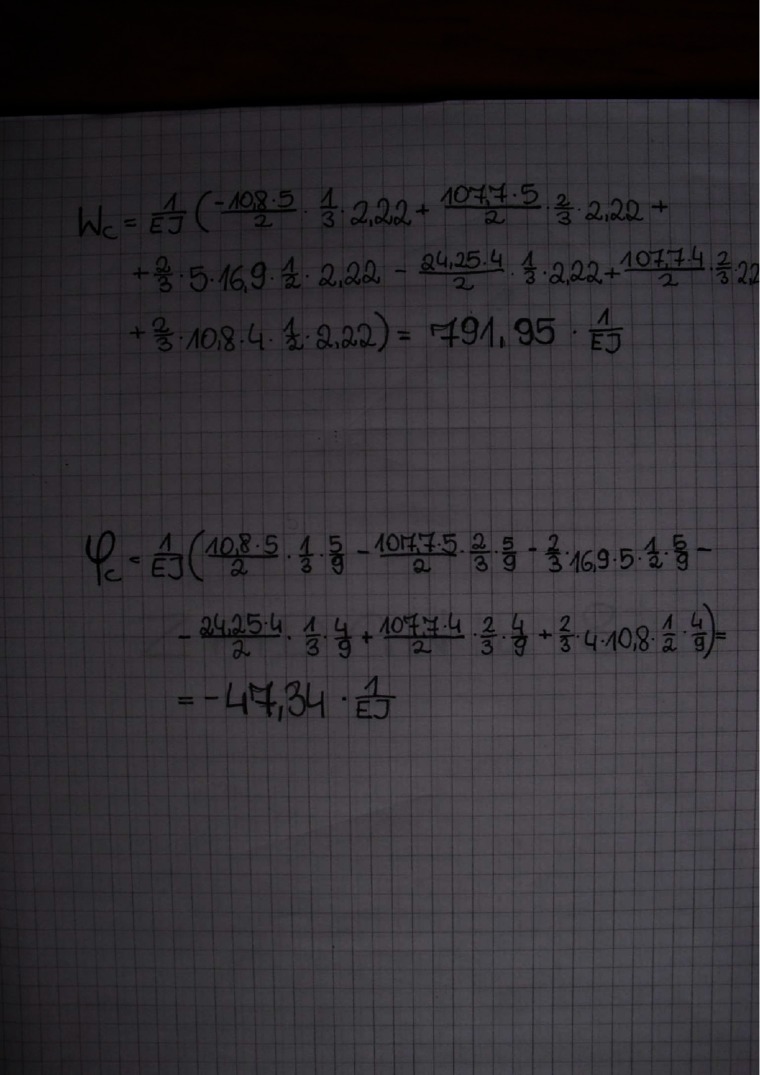 W_c = 1/EJ ( -10,8·5/2 · 1/3 · 2,22 + 107,7·5/2 · 2/3 · 2,22 +
+ 2/3 · 5 · 16,9 · 1/2 · 2,22 - 24,25·4/2 · 1/3 · 2,22 + 107,7·4/2 · 2/3 · 22
+ 2/3 · 10,8 · 4 · 1/2 · 2,22 ) = 791,95 · 1/EJ
φ_c = 1/EJ ( 10,8·5/2 · 1/3 · 5/9 - 107,7·5/2 · 2/3 · 5/9 - 2/3 · 16,9 · 5 · 1/2 · 5/9 -
- 24,25·4/2 · 1/3 · 4/9 + 107,7·4/2 · 2/3 · 4/9 + 2/3 · 4 · 10,8 · 1/2 · 4/9 ) =
= -47,34 · 1/EJ